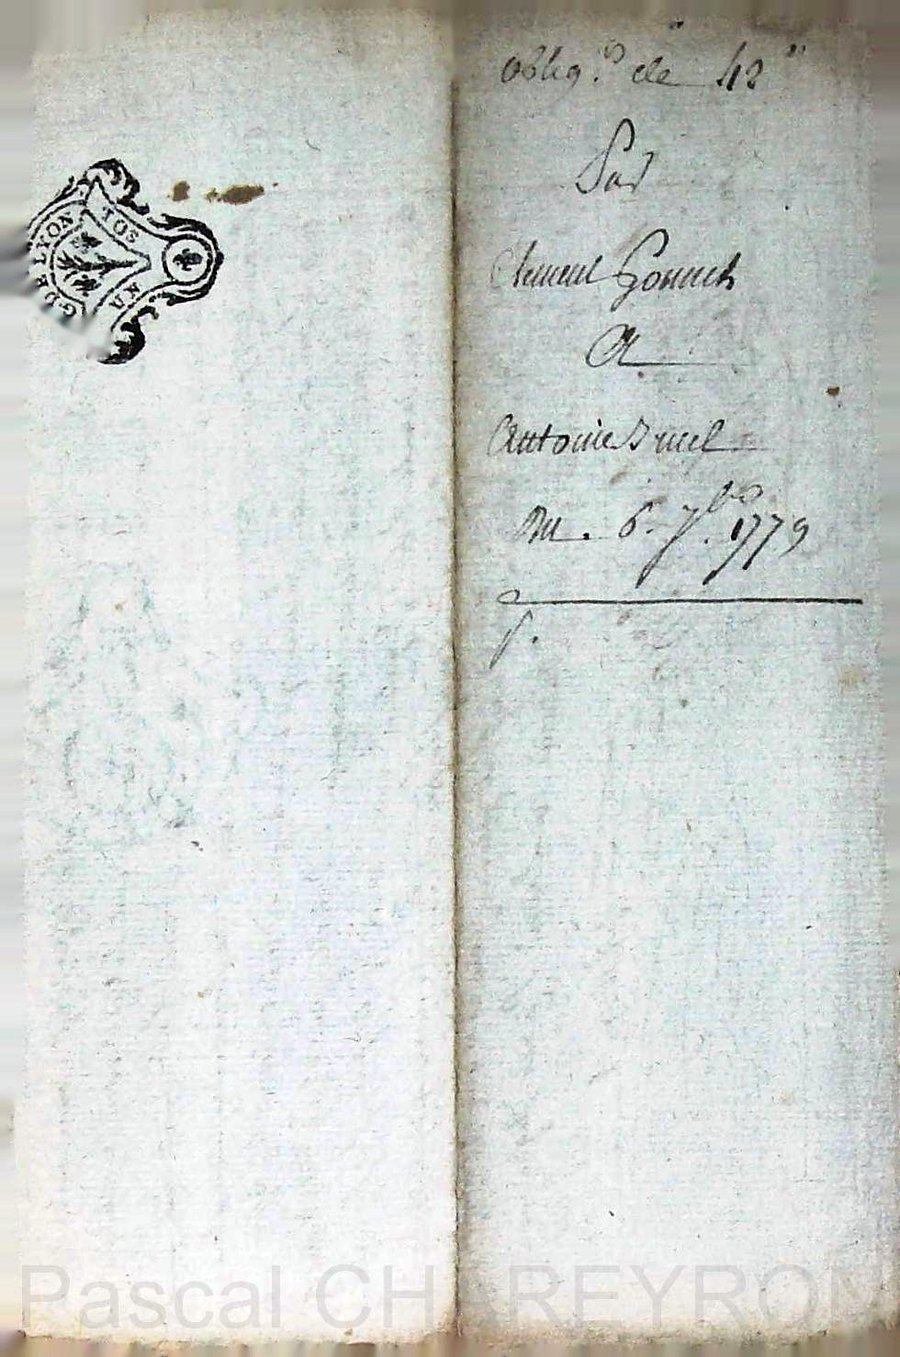 G DE LYON
TUS
NA
oblig.on de 42"
Par
Clement Gonnet
A
Antoine
Du. 6. 7bre. 1779
Pascal CHAREYRON